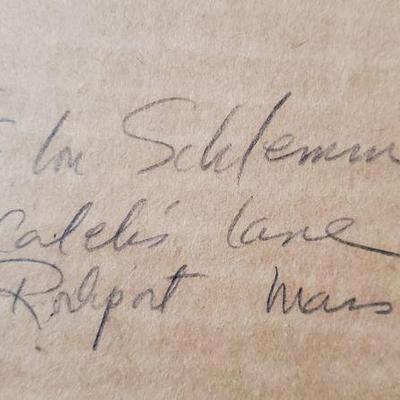 Lou Schlemm
Caleb's Lane
Rockport Mass